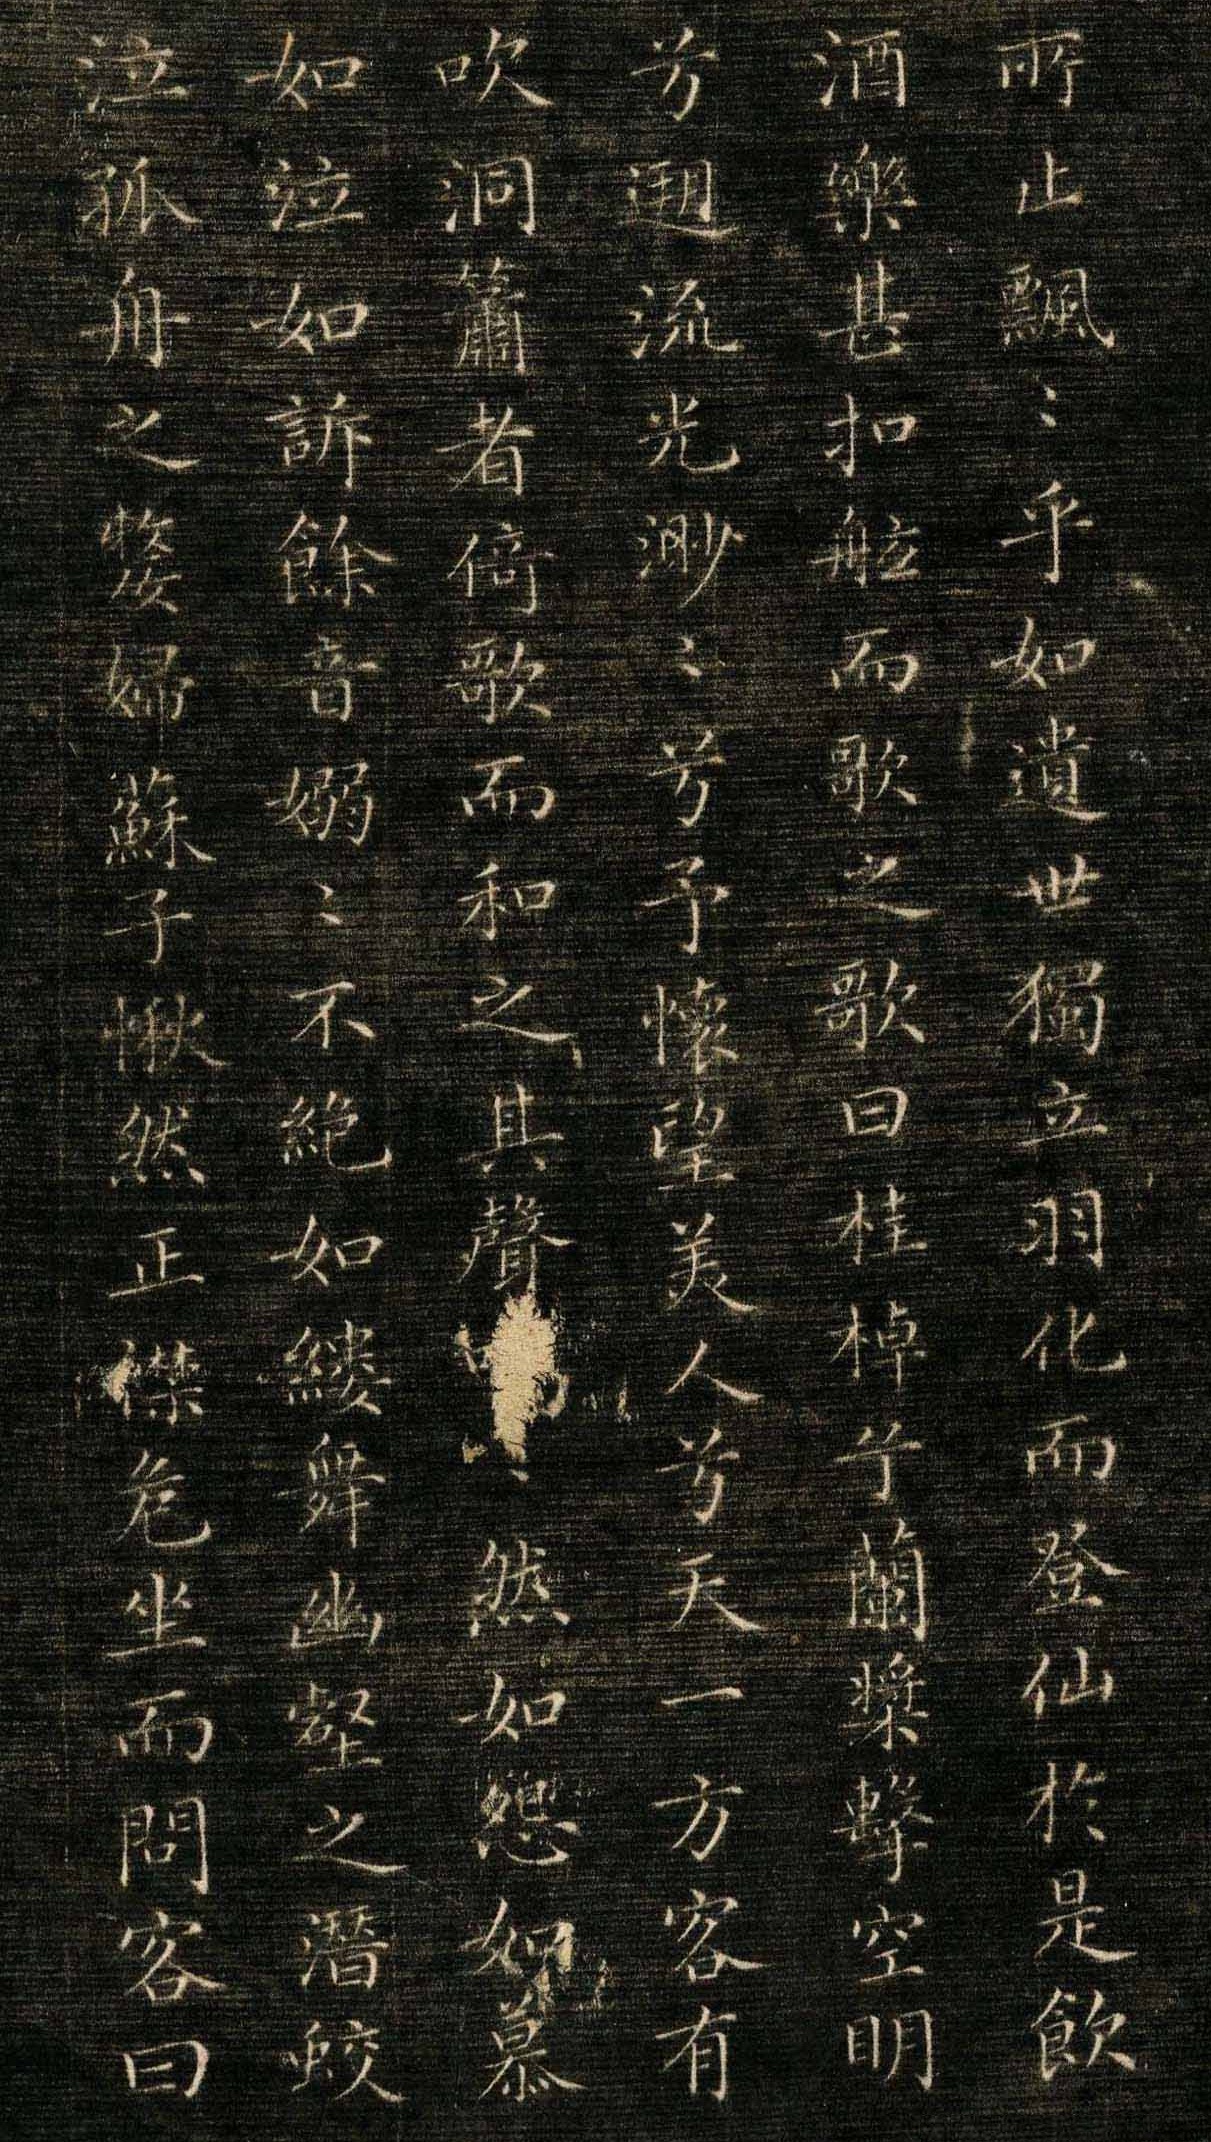 所止飄〻乎如遺世獨立羽化而登仙於是飲
酒樂甚扣舷而歌之歌曰桂棹兮蘭槳擊空明
兮遡流光渺〻兮予懷望美人兮天一方客有
吹洞簫者倚歌而和之其聲然如怨如慕
如泣如訴餘音嫋〻不絶如縷舞幽壑之潛蛟
泣孤舟之嫠婦蘇子愀然正襟危坐而問客曰